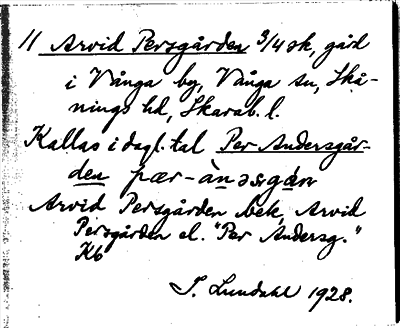 11 Arvid Persgården 3/4 sk, gård
i Vånga by, Vånga sn, Skå-
nings hd, Skarab. l.
Kallas i dagl. tal Per-Andersgår-
den pær-
Arvid Persgården bek, Arvid
Persgården el. "Per Andersg."
Kb
J. Lundahl 1928.